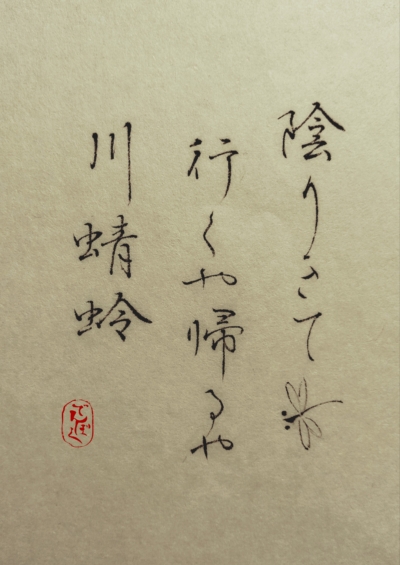 陰りきて
行くや帰るや
川蜻蛉